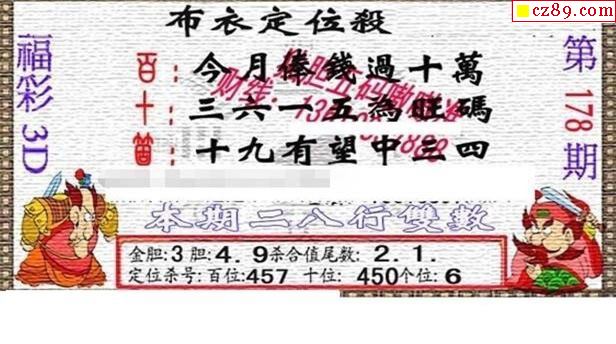 cz89.com
布衣定位殺
福彩3D
第178期
百：今月俸錢過十萬
十：三六一五為旺碼
個：十九有望中三四
本期二八行雙數
金胆:3胆:4.9杀合值尾数:2.1.
定位杀号:百位:457 十位:450个位:6